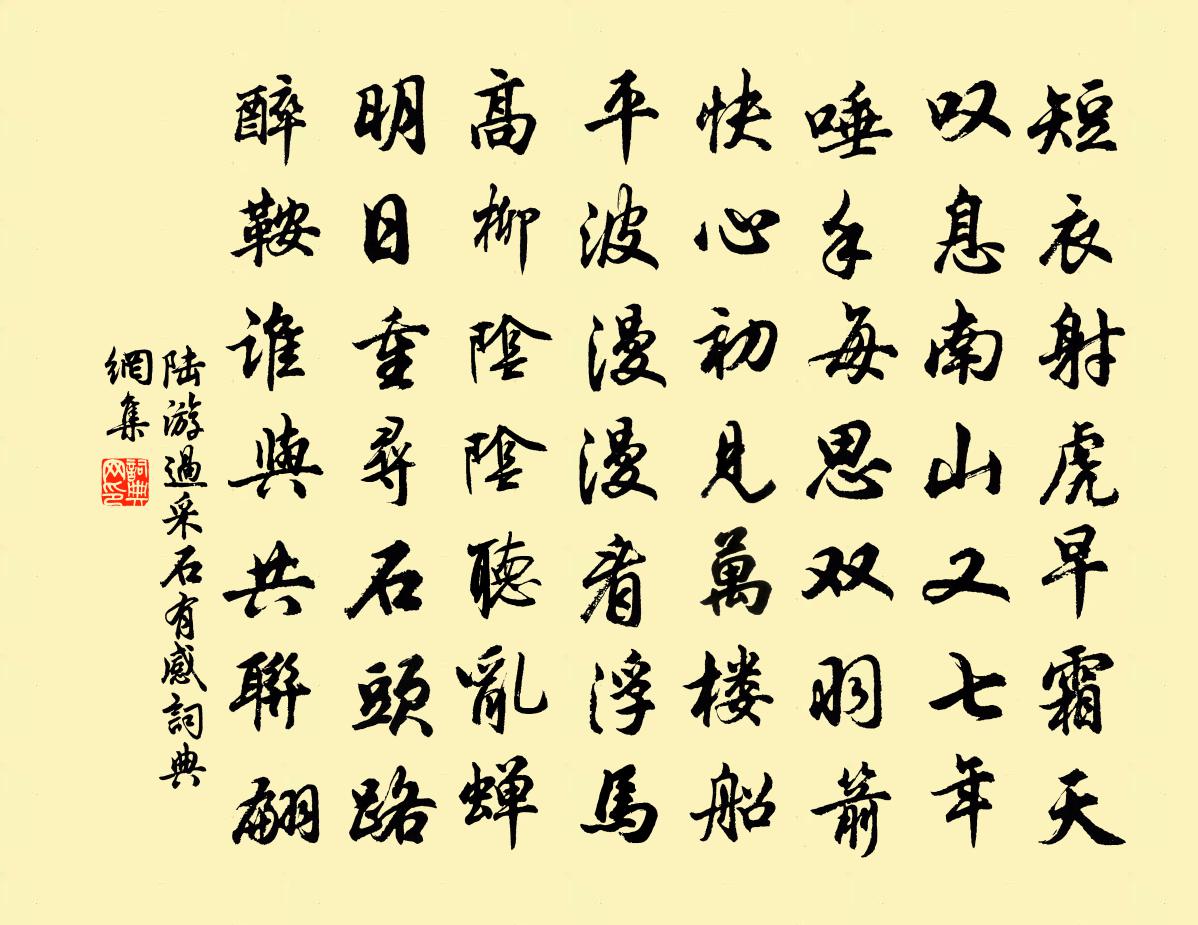 短衣射虎早霜天
叹息南山又七年
唾手每思双羽箭
快心初见萬楼船
平波漫漫看浮馬
高柳陰陰聽亂蝉
明日重尋石頭路
醉鞍谁與共聯翩
陆游過采石有感詞典
網集
詞典
网印